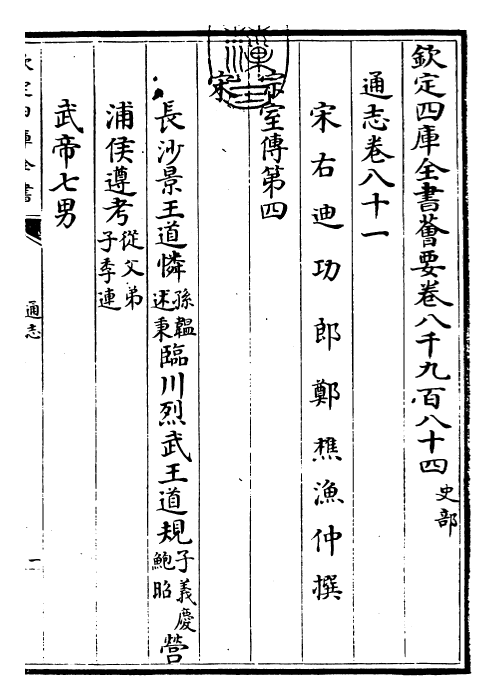 欽定四庫全書薈要卷八千九百八十四 史部
通志卷八十一
宋右迪功郎鄭樵漁仲撰
宗室傳第四
宋
長沙景王道憐 孫韞 述秉 臨川烈武王道規 子義慶 鮑昭 營
浦侯遵考 從父弟 子季連
武帝七男
欽定四庫全書
通志
一